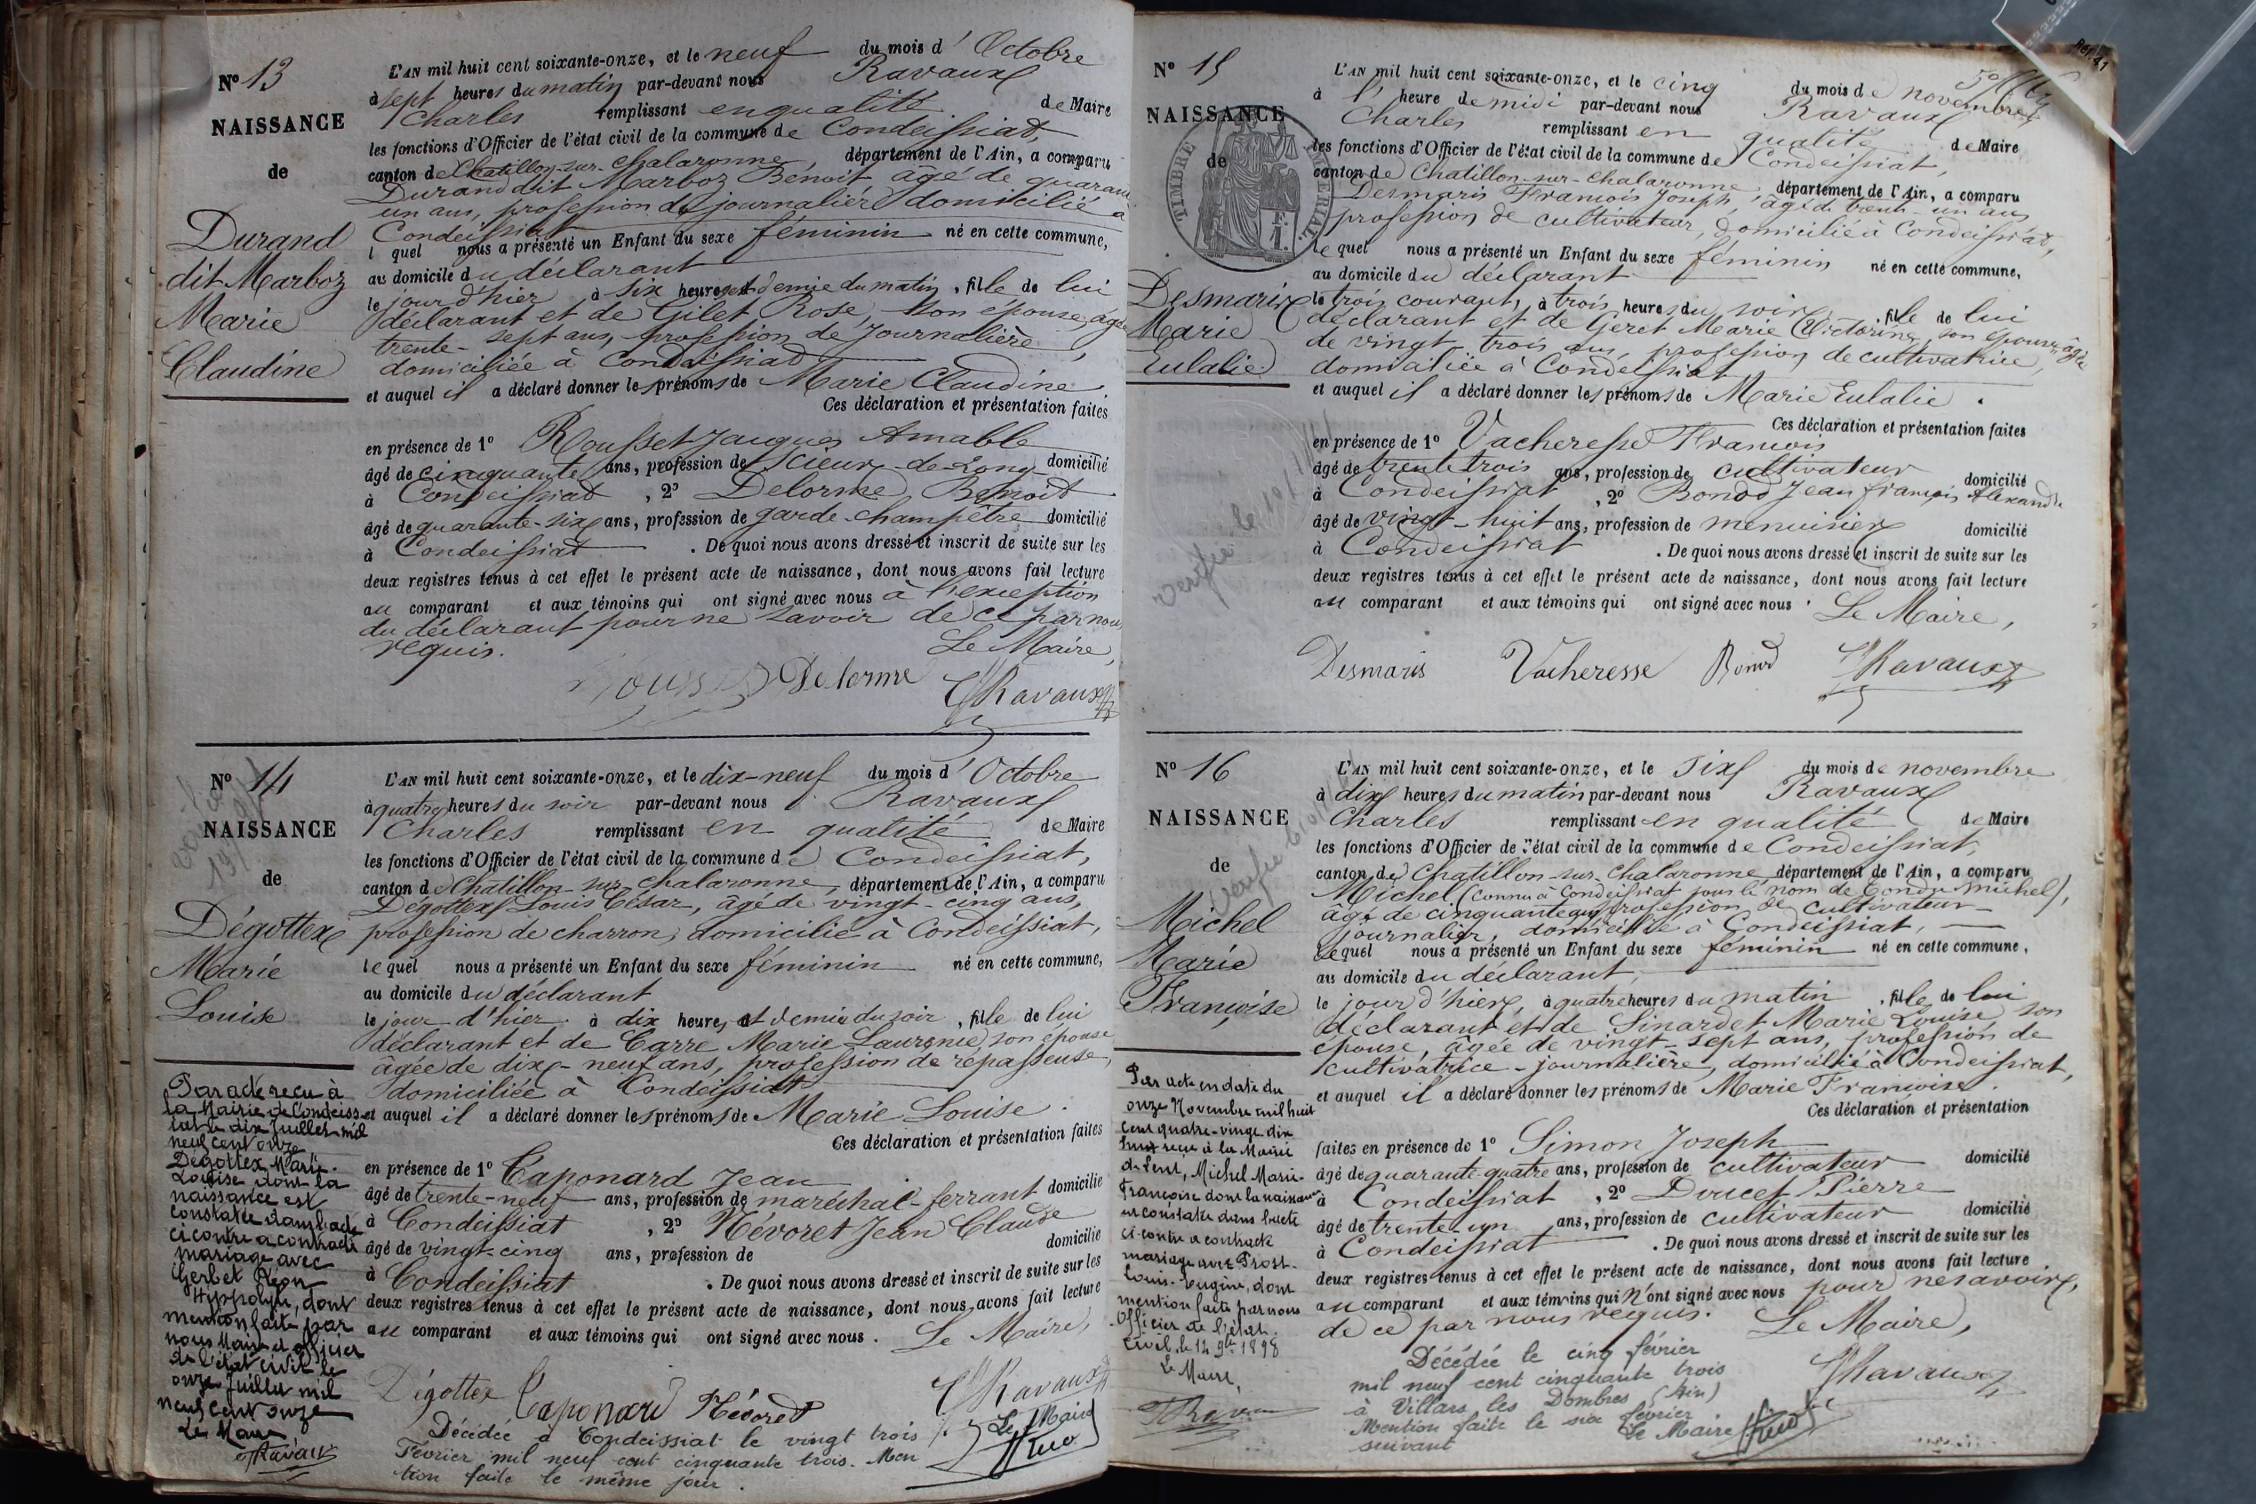 N° 13
NAISSANCE
de
Durand
dit Marboz
Marie
Claudine
L'AN mil huit cent soixante-onze, et le neuf du mois d'Octobre
à sept heures du matin par-devant nous Ravaux
Charles remplissant en qualité de Maire
les fonctions d'Officier de l'état civil de la commune de Condeissiat,
canton de Chatillon-sur-Chalaronne, département de l'Ain, a comparu
Durand dit Marboz Benoit âgé de quarante
un ans, profession de journalier domicilié à
Condeissiat
l quel nous a présenté un Enfant du sexe féminin né en cette commune,
au domicile du déclarant
le jour d'hier à six heures et demie du matin, fille de lui
déclarant et de Gilet Rose, son épouse, âgée
trente-sept ans, profession de journalière,
domiciliée à Condeissiat
et auquel il a déclaré donner les prénoms de Marie Claudine
Ces déclaration et présentation faites
en présence de 1° Rousset Jacques Amable
âgé de cinquante ans, profession de scieur-de-Long domicilié
à Condeissiat, 2° Delorme Benoit
âgé de quarante-six ans, profession de garde-champêtre domicilié
à Condeissiat. De quoi nous avons dressé et inscrit de suite sur les
deux registres tenus à cet effet le présent acte de naissance, dont nous avons fait lecture
au comparant et aux témoins qui ont signé avec nous à l'exception
du déclarant pour ne savoir de ce par nous
requis. Le Maire,
Rousset Delorme Ravaux
N° 14
NAISSANCE
de
Dégottex
Marie
Louise
L'AN mil huit cent soixante-onze, et le dix-neuf du mois d'Octobre
à quatre heures du soir par-devant nous Ravaux
Charles remplissant en qualité de Maire
les fonctions d'Officier de l'état civil de la commune de Condeissiat,
canton de Chatillon-sur-Chalaronne, département de l'Ain, a comparu
Dégottex Louis César, âgé de vingt-cinq ans,
profession de charron, domicilié à Condeissiat,
lequel nous a présenté un Enfant du sexe féminin né en cette commune,
au domicile du déclarant
le jour d'hier à dix heures et demie du soir, fille de lui
déclarant et de Carre Marie Laurence, son épouse
âgée de dix-neuf ans, profession de repasseuse,
domiciliée à Condeissiat
et auquel il a déclaré donner les prénoms de Marie Louise.
Ces déclaration et présentation faites
en présence de 1° Caponard Jean
âgé de trente-neuf ans, profession de maréchal-ferrant domicilié
à Condeissiat, 2° Névoret Jean Claude
âgé de vingt-cinq ans, profession de domicilié
à Condeissiat. De quoi nous avons dressé et inscrit de suite sur les
deux registres tenus à cet effet le présent acte de naissance, dont nous avons fait lecture
au comparant et aux témoins qui ont signé avec nous. Le Maire,
Dégottex Caponard Névoret Ravaux
Décédée à Condeissiat le vingt trois
Février mil neuf cent cinquante trois. Men
tion faite le même jour.
Le Maire
Par acte reçu à
la Mairie de Condeiss
iat le dix Juillet mil
neuf cent onze
Dégottex Marie
Louise dont la
naissance est
constatée dans l'acte
ci contre a contracté
mariage avec
Gerbet Léon
Hippolyte, dont
mention faite par
nous Maire et officier
de l'état civil le
onze Juillet mil
neuf cent onze
Le Maire
Ravaux
N° 15
NAISSANCE
de
TIMBRE IMPERIAL
1 F.
Desmaris
Marie
Eulalie
L'AN mil huit cent soixante-onze, et le cinq du mois de novembre
à l' heure de midi par-devant nous Ravaux
Charles remplissant en qualité de Maire
les fonctions d'Officier de l'état civil de la commune de Condeissiat,
canton de Chatillon-sur-Chalaronne, département de l'Ain, a comparu
Desmaris François Joseph, âgé de trente-un ans
profession de cultivateur, domicilié à Condeissiat,
lequel nous a présenté un Enfant du sexe féminin né en cette commune,
au domicile du déclarant
le trois courant, à trois heures du soir, fille de lui
déclarant et de Geret Marie Victorine, son épouse, âgée
de vingt trois ans, profession de cultivatrice,
domiciliée à Condeissiat
et auquel il a déclaré donner les prénoms de Marie Eulalie.
Ces déclaration et présentation faites
en présence de 1° Vacheresse François
âgé de trente trois ans, profession de cultivateur domicilié
à Condeissiat, 2° Bond Jean françois Alexandre
âgé de vingt-huit ans, profession de menuisier domicilié
à Condeissiat. De quoi nous avons dressé et inscrit de suite sur les
deux registres tenus à cet effet le présent acte de naissance, dont nous avons fait lecture
au comparant et aux témoins qui ont signé avec nous. Le Maire,
Desmaris Vacheresse Bond Ravaux
N° 16
NAISSANCE
de
Michel
Marie
Françoise
L'AN mil huit cent soixante-onze, et le six du mois de novembre
à dix heures du matin par-devant nous Ravaux
Charles remplissant en qualité de Maire
les fonctions d'Officier de l'état civil de la commune de Condeissiat,
canton de Chatillon-sur-Chalaronne, département de l'Ain, a comparu
Michel (connu à Condeissiat sous le nom de Michel),
âgé de cinquante ans profession de cultivateur
journalier, domicilié à Condeissiat,
lequel nous a présenté un Enfant du sexe féminin né en cette commune,
au domicile du déclarant,
le jour d'hier, à quatre heures du matin, fille de lui
déclarant et de Sinardet Marie Louise son
épouse, âgée de vingt-sept ans, profession de
cultivatrice-journalière, domiciliée à Condeissiat,
et auquel il a déclaré donner les prénoms de Marie Françoise.
Ces déclaration et présentation
faites en présence de 1° Simon Joseph
âgé de quarante-quatre ans, profession de cultivateur domicilié
à Condeissiat, 2° Doucet Pierre
âgé de trente-un ans, profession de cultivateur domicilié
à Condeissiat. De quoi nous avons dressé et inscrit de suite sur les
deux registres tenus à cet effet le présent acte de naissance, dont nous avons fait lecture
au comparant et aux témoins qui n'ont signé avec nous pour ne savoir,
de ce par nous requis. Le Maire,
Ravaux
Décédée le cinq février
mil neuf cent cinquante trois
à Villars les Dombes (Ain)
Mention faite le six février
suivant Le Maire
Par acte en date du
onze Novembre mil huit
cent quatre-vingt dix
huit reçu à la Mairie
de Lent, Michel Marie-
Françoise dont la naissance
est constatée dans l'acte
ci-contre a contracté
mariage avec Prost-
Louis-Eugène, dont
mention faite par nous
Officier de l'état-
Civil, le 14 9bre 1898
Le Maire,